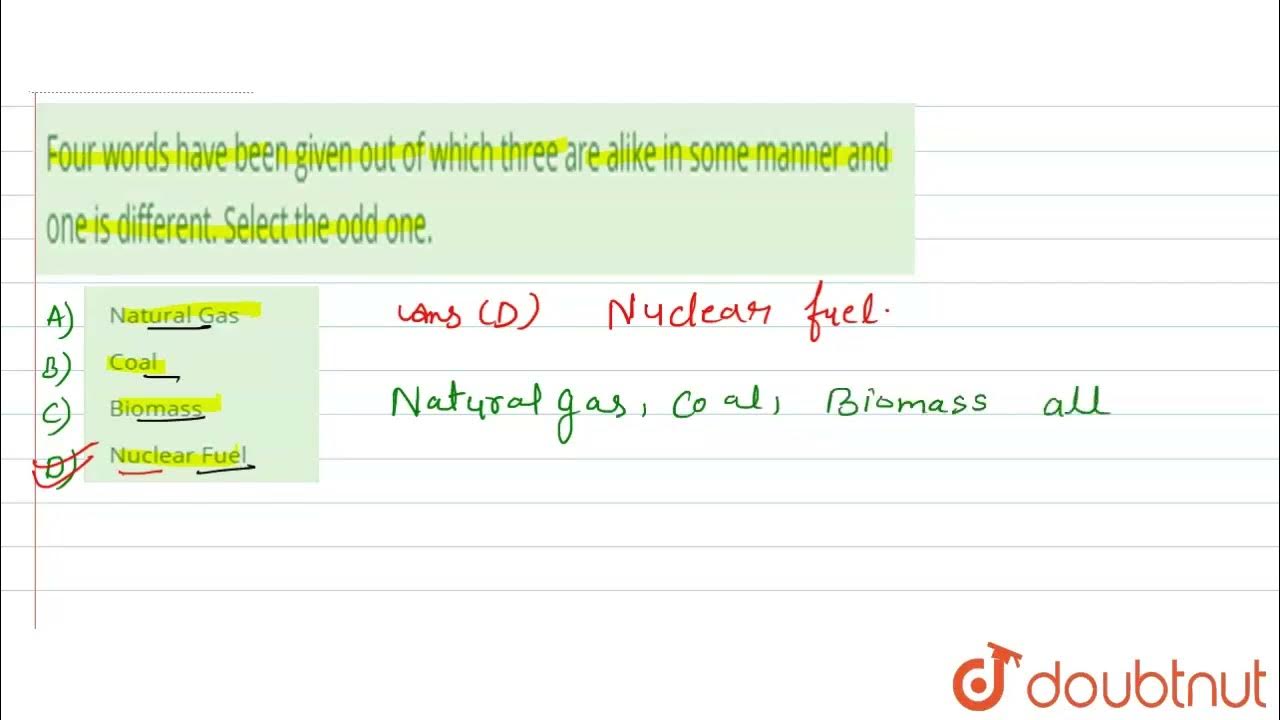 Four words have been given out of which three are alike in some manner and
one is different. Select the odd one.
A) Natural Gas
B) Coal
C) Biomass
D) Nuclear Fuel
ans (D) Nuclear fuel.
Natural gas, Coal, Biomass all
doubtnut